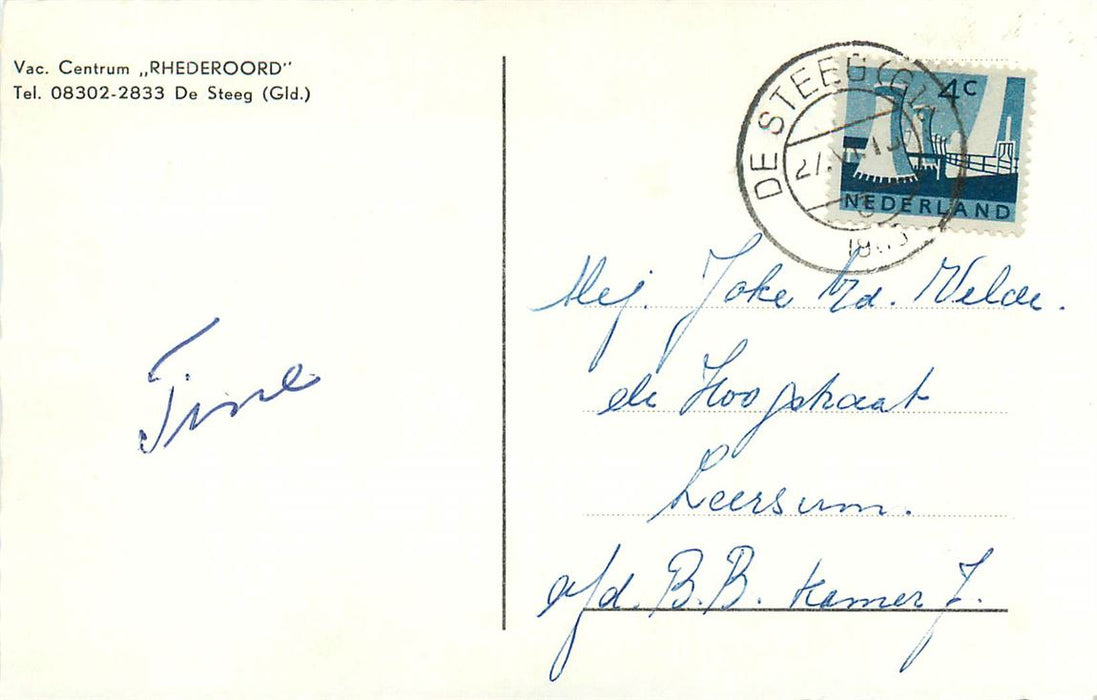 Vac. Centrum „RHEDEROORD"
Tel. 08302-2833 De Steeg (Gld.)
DE STEEG (GLD.)
4c
NEDERLAND
Mej. Joke v.d. Velde.
de Hoogstraat
Leersum.
afd. B.B. kamer 7.
Tine